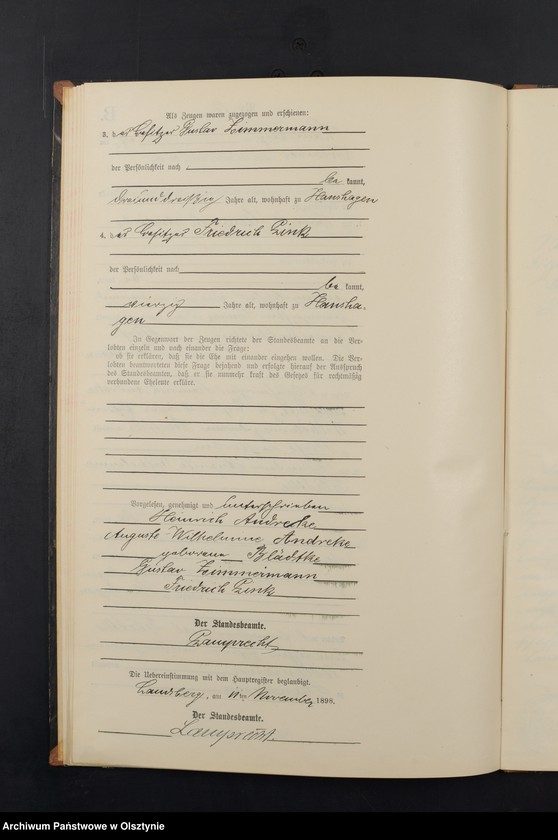 Als Zeugen waren zugezogen und erschienen:
3. der Besitzer Gustav Zimmermann
der Persönlichkeit nach
be kannt,
dreiunddreißig Jahre alt, wohnhaft zu Hanshagen
4. der Besitzer Friedrich Zink
der Persönlichkeit nach
be kannt,
vierzig Jahre alt, wohnhaft zu Hansha-
gen
In Gegenwart der Zeugen richtete der Standesbeamte an die Ver-
lobten einzeln und nach einander die Frage:
ob sie erklären, daß sie die Ehe mit einander eingehen wollen. Die Ver-
lobten beantworteten diese Frage bejahend und erfolgte hierauf der Ausspruch
des Standesbeamten, daß er sie nunmehr kraft des Gesetzes für rechtmäßig
verbundene Eheleute erkläre.
Vorgelesen, genehmigt und unterschrieben
Heinrich Andreke
Auguste Wilhelmine Andreke
geborene Blädtke
Gustav Zimmermann
Friedrich Zink
Der Standesbeamte.
Lamprecht
Die Uebereinstimmung mit dem Hauptregister beglaubigt.
Landsberg, am 11 ten November 1898.
Der Standesbeamte.
Lamprecht
Archiwum Państwowe w Olsztynie